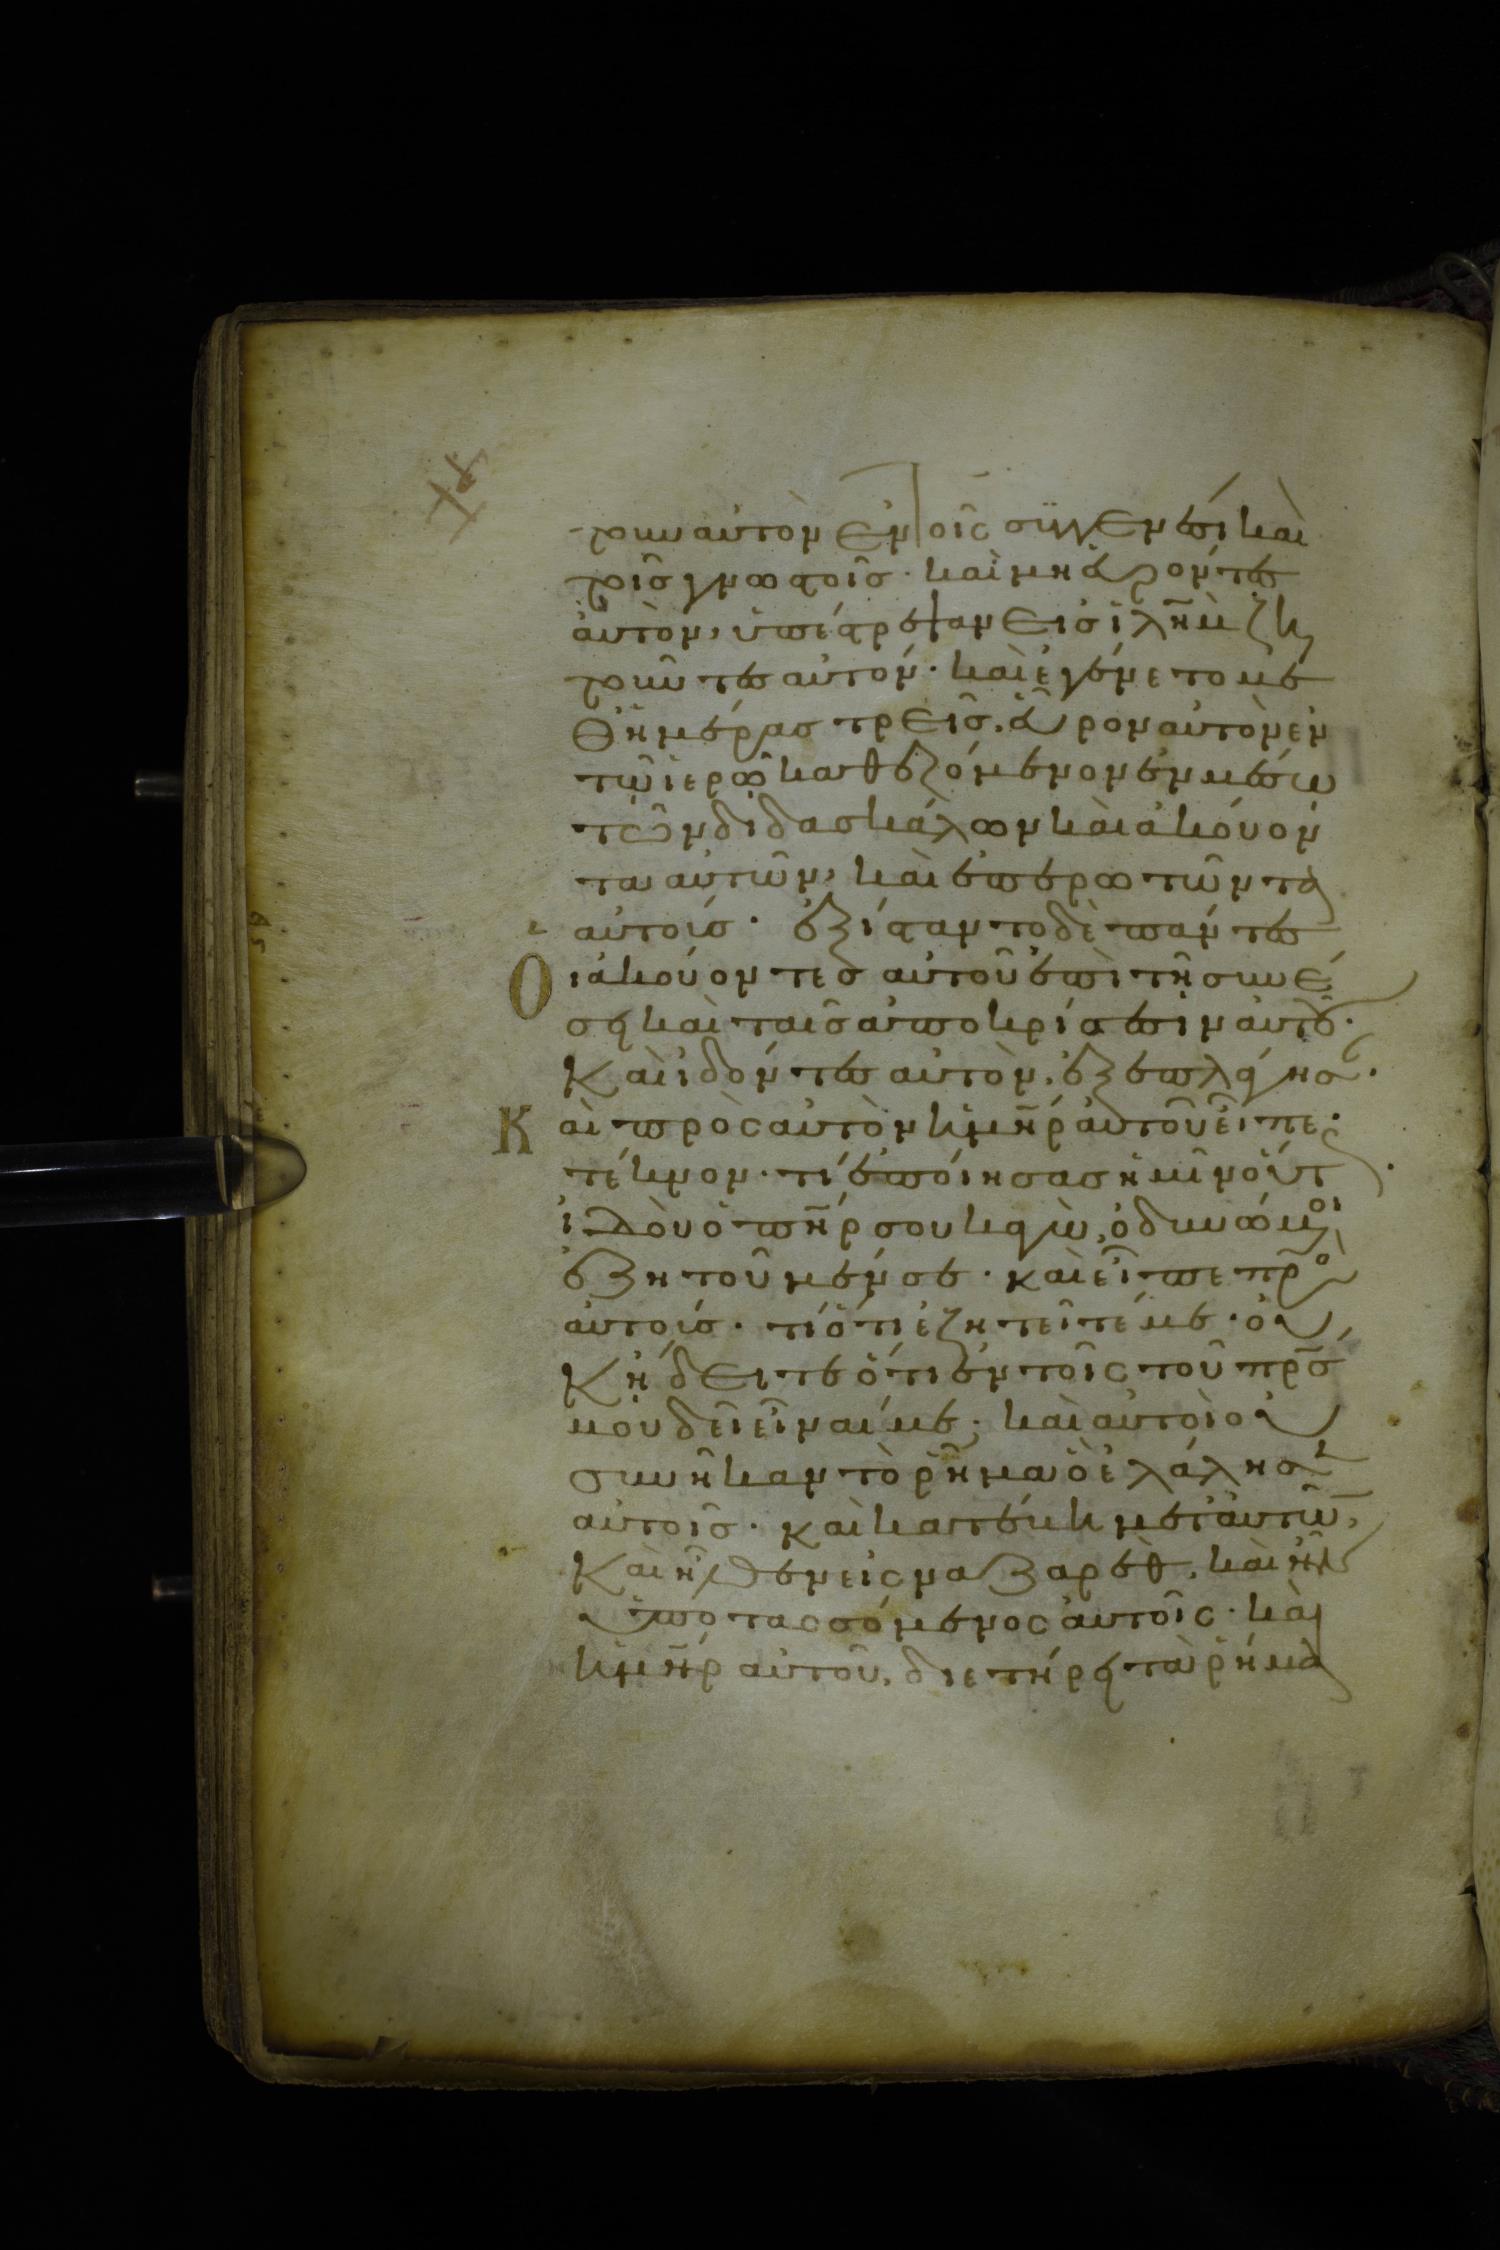 τουν αὐτὸν ἐν τοῖς συγγενέσι καὶ
τοῖς γνωστοῖς· καὶ μὴ εὑρόντες
αὐτὸν, ὑπέστρεψαν εἰς ἰλημ ζη
τοῦντες αὐτόν· καὶ ἐγένετο με
θ' ἡμέρας τρεῖς, εὗρον αὐτὸν ἐν
τῷ ἱερῷ καθεζόμενον ἐν μέσῳ
τῶν διδασκάλων καὶ ἀκούον
τα αὐτῶν, καὶ ἐπερωτῶντα
αὐτούς· ἐξίσταντο δὲ πάντες
Οἱ ἀκούοντες αὐτοῦ ἐπὶ τῇ συνέ
σει καὶ ταῖς ἀποκρίσεσιν αὐτοῦ·
Καὶ ἰδόντες αὐτὸν, ἐξεπλάγησαν·
Καὶ πρὸς αὐτὸν ἡ μηρ αὐτοῦ εἶπε·
τέκνον· τί ἐποίησας ἡμῖν οὕτως·
ἰδοὺ ὁ πηρ σου κἀγὼ, ὀδυνώμενοι
ἐζητοῦμέν σε· καὶ εἶπε πρὸς
αὐτούς· τί ὅτι ἐζητεῖτέ με· οὐ
κ ᾔδειτε ὅτι ἐν τοῖς τοῦ πρς
μου δεῖ εἶναί με; καὶ αὐτοὶ οὐ
συνῆκαν τὸ ῥῆμα ὃ ἐλάλησεν
αὐτοῖς· καὶ κατέβη μετ' αὐτῶν,
Καὶ ἦλθεν εἰς ναζαρέθ, καὶ ἦν
ὑποτασσόμενος αὐτοῖς· καὶ
ἡ μηρ αὐτοῦ, διετήρει τὰ ῥήματα